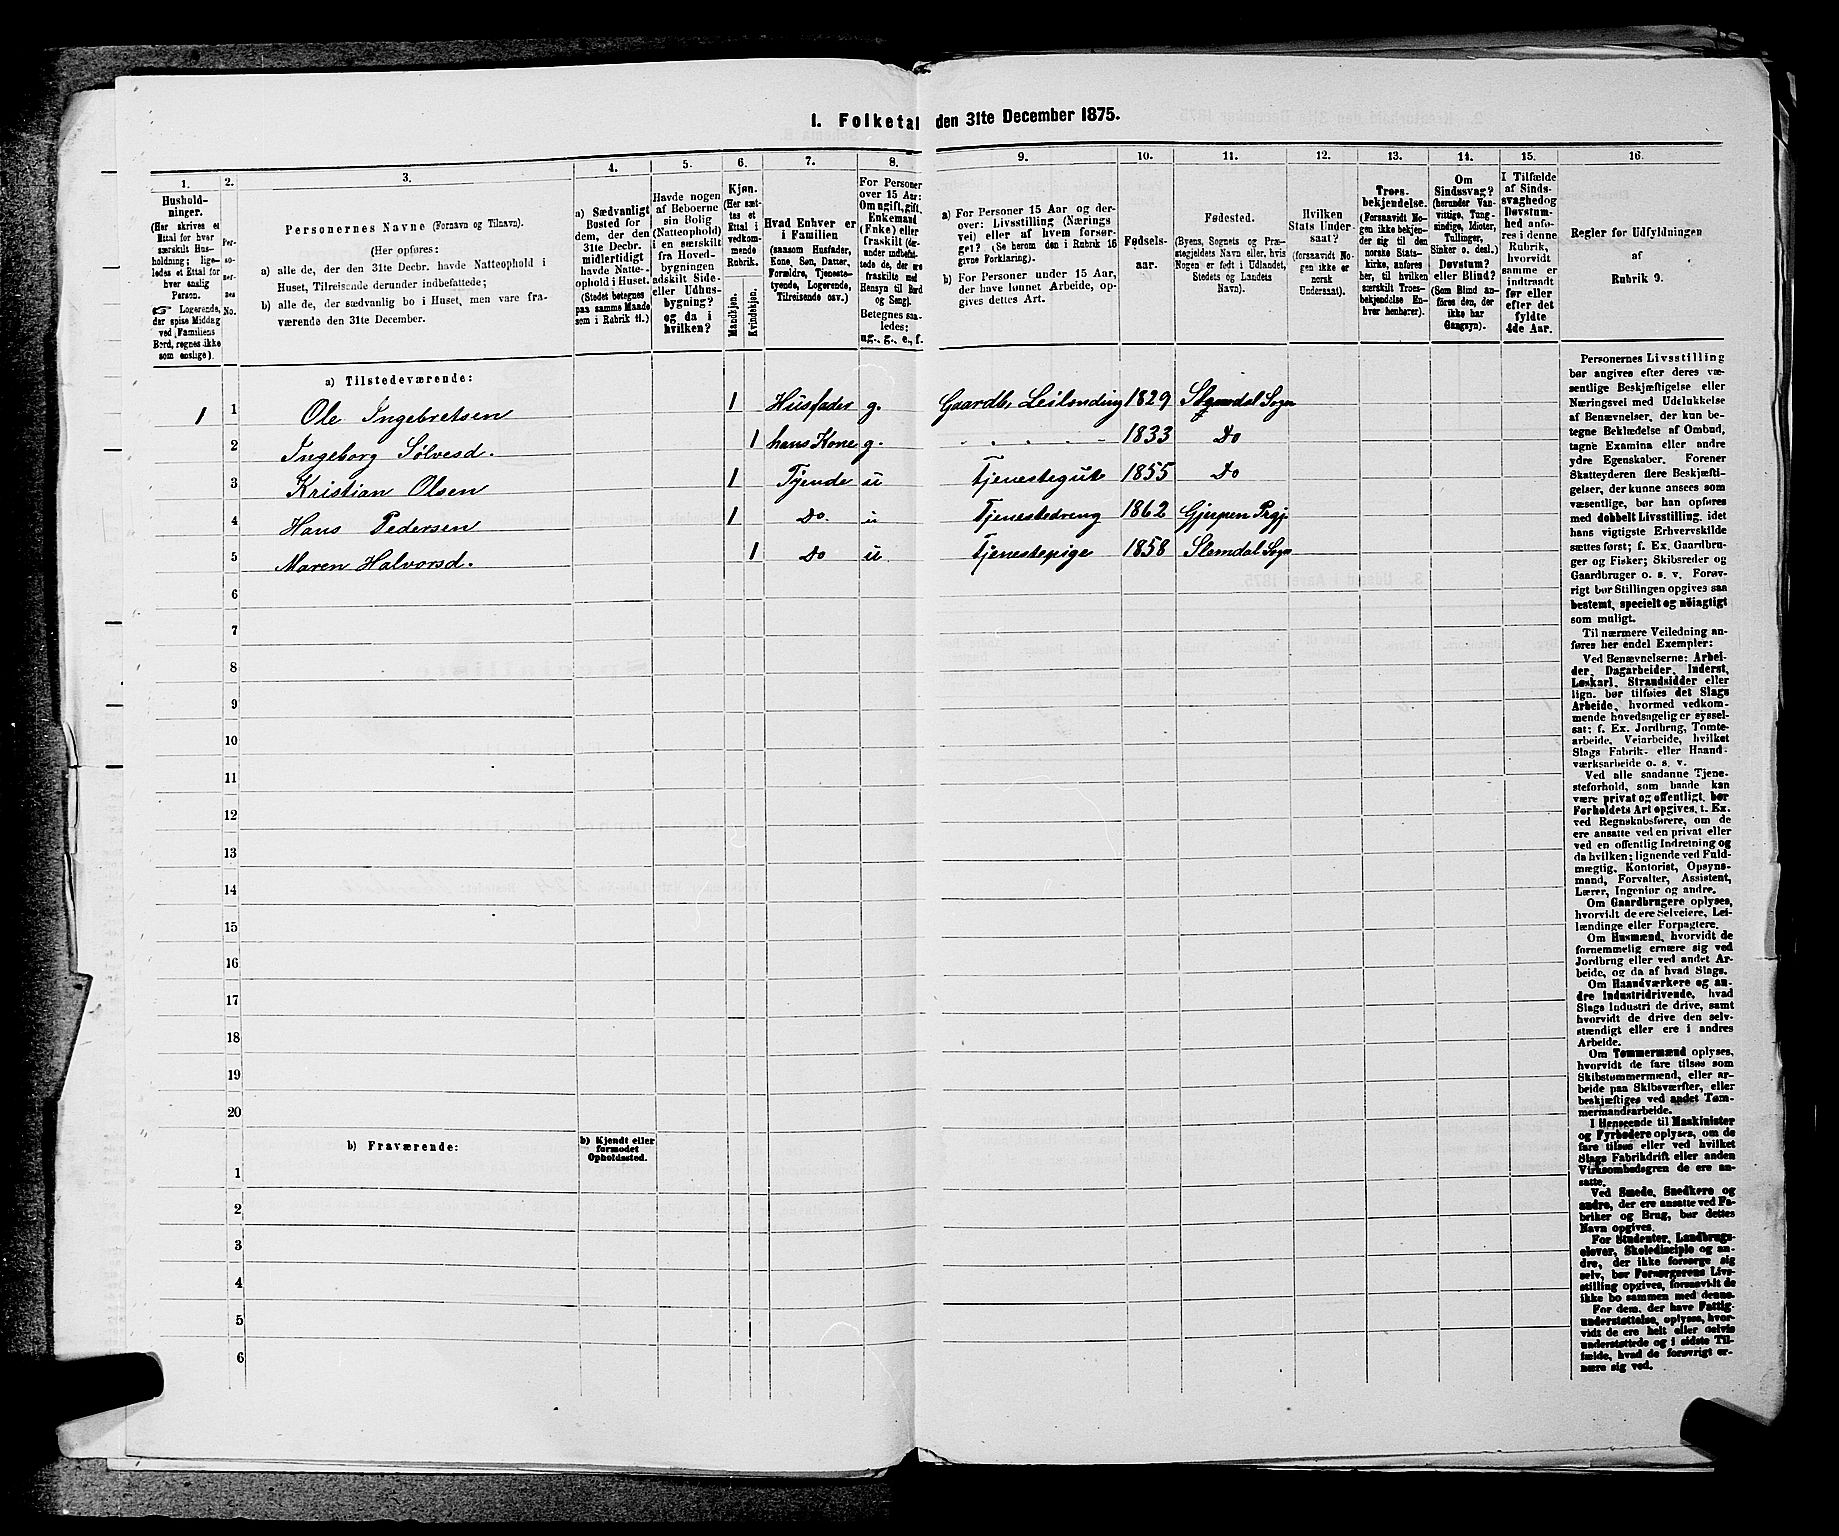 I. Folketal den 31te December 1875.
1. 2. 3. 4. 5. 6. 7. 8. 9. 10. 11. 12. 13. 14. 15. 16.
Hushold-
ninger.
(Her skrives et
Ettal for hver
særskilt Hus-
holdning; lige-
ledes et Ettal for
hver enslig
Person.
Logerende,
der spise Middag
ved Familiens
Bord, regnes ikke
som enslige).
Per-
so-
ner-
nes
No.
Personernes Navne (Fornavn og Tilnavn).
(Her opføres:
a) alle de, der den 31te Decbr. havde Natteophold i
Huset, Tilreisende derunder indbefattede;
b) alle de, der sædvanlig bo i Huset, men vare fra-
værende den 31te December.
a) Sædvanligt
Bosted for
dem, der den
31te Decbr.
midlertidigt
havde Natte-
ophold i Huset.
(Stedet betegnes
paa samme Maade
som i Rubrik 11.)
Havde nogen
af Beboerne
sin Bolig
(Natteophold)
i en særskilt
fra Hoved-
bygningen
adskilt Side-
eller Udhus-
bygning?
og da i
hvilken?
Kjøn.
(Her sæt-
tes et
Ettal i
vedkom-
mende
Rubrik.
Mandkjøn.
Kvindekjøn.
Hvad Enhver er
i Familien
(saasom Husfader,
Kone, Søn, Datter,
Forældre, Tjeneste-
tyende, Logerende,
Tilreisende osv.)
For Personer
over 15 Aar:
Om ugift, gift,
Enkemand
(Enke) eller
fraskilt (der-
under indbefat-
tede, der ere
fraskilte med
Hensyn til Bord
og Seng).
Betegnes saa-
ledes:
ug., g., e., f.
a) For Personer 15 Aar og der-
over: Livsstilling (Nærings-
vei) eller af hvem forsør-
get? (Se herom den i Rubrik 16
givne Forklaring).
b) For Personer under 15 Aar,
der have lønnet Arbeide, op-
gives dettes Art.
Fødsels-
aar.
Fødested.
(Byens, Sognets og Præ-
stegjeldets Navn eller, hvis
Nogen er født i Udlandet,
Stedets og Landets
Navn).
Hvilken
Stats Under-
saat?
(forsaavidt No-
gen ikke er
norsk
Undersaat).
Troes-
bekjendelse.
(Forsaavidt No-
gen ikke bekjen-
der sig til den
norske Stats-
kirke, anføres
her, til hvilken
særskilt Troes-
bekjendelse En-
hver henhører).
Om
Sindssvag?
(herunder Van-
vittige, Tung-
sindige, Idioter,
Tullinger,
Sinker o. desl.)
Døvstum?
eller Blind?
(Som Blind an-
føres den, der
ikke har
Gangsyn).
I Tilfælde
af Sinds-
svaghed og
Døvstum-
hed anfø-
res i denne
Rubrik,
hvorvidt
samme er
indtraadt
før eller
efter det
fyldte
4de Aar.
Regler for Udfyldningen
af
Rubrik 9.
a) Tilstedeværende:
1 1 Ole Ingebretsen 1 Husfader g. Gaardb. Leilending 1829 Slemdal Sogn
2 Ingeborg Sølvesd. 1 hans Kone g. 1833 Do
3 Kristian Olsen 1 Tjende u Tjenestegut 1855 Do
4 Hans Pedersen 1 Do. u Tjenestedreng 1862 Gjerpen Prgj.
5 Maren Halvorsd. 1 Do u Tjenestepige 1858 Slemdal Sogn
6
7
8
9
10
11
12
13
14
15
16
17
18
19
20
b) Fraværende:
b) Kjendt eller
formodet
Opholdssted.
1
2
3
4
5
6
Personernes Livsstilling
bør angives efter deres væ-
sentlige Beskjæftigelse eller
Næringsvei med Udelukkelse
af Benævnelser, der kun be-
tegne Beklædelse af Ombud,
tagne Examina eller andre
ydre Egenskaber. Forener
Skatteyderen flere Beskjæfti-
gelser, der kunne ansees som
væsentlige, bør han opføres
med dobbelt Livsstilling, idet
hans vigtigste Erhvervskilde
sættes først; f. Ex. Gaardbru-
ger og Fisker; Skibsreder og
Gaardbruger o. s. v. Forøv-
rigt bør Stillingen opgives saa
bestemt, specielt og nöiagtigt
som muligt.
Til nærmere Veiledning an-
føres her endel Exempler:
Ved Benævnelserne: Arbei-
der, Dagarbeider, Inderst,
Løskarl, Strandsidder eller
lign. bør tilføies det Slags
Arbeide, hvormed vedkom-
mende hovedsagelig er syssel-
sat; f. Ex. Jordbrug, Tomte-
arbeide, Veiarbeide, hvilket
Slags Fabrik- eller Haand-
værksarbeide o. s. v.
Ved alle saadanne Tjene-
steforhold, som baade kan
være privat og offentligt, bør
Forholdets Art opgives, t. Ex.
ved Regnskabsførere, om de
ere ansatte ved en privat eller
ved en offentlig Indretning og
da hvilken; lignende ved Fuld-
mægtig, Kontorist, Opsyns-
mand, Forvalter, Assistent,
Lærer, Ingeniør og andre.
Om Gaardbrugere oplyses,
hvorvidt de ere Selveiere, Lei-
lændinge eller Forpagtere.
Om Husmænd, hvorvidt de
fornemmelig ernære sig ved
Jordbrug eller ved andet Ar-
beide, og da af hvad Slags.
Om Haandværkere og an-
dre Industridrivende, hvad
Slags Industri de drive, samt
hvorvidt de drive den selv-
stændigt eller ere i andres
Arbeide.
Om Tømmermænd oplyses,
hvorvidt de fare tilsøs som
Skibstømmermænd, eller ar-
beide paa Skibsværfter, eller
beskjæftiges ved andet Tøm-
mermandsarbeide.
I Henseende til Maskinister
og Fyrbødere oplyses, om de
fare tilsøs eller ved hvilket
Slags Fabrikdrift eller anden
Virksomhedsgren de ere an-
satte.
Ved Smede, Snedkere og
andre, der ere ansatte ved Fa-
briker og Brug, bør dettes
Navn opgives.
For Studenter, Landbrugs-
elever, Skoledisciple og an-
dre, der ikke forsørge sig
selv, bør Forsørgerens Livs-
stilling opgives, forsaavidt de
ikke bo sammen med denne.
For dem, der have Fattig-
understøttelse, oplyses, hvor-
vidt de ere helt eller delvis
understøttede og i sidste Til-
fælde, hvad de forøvrigt er-
nære sig ved.